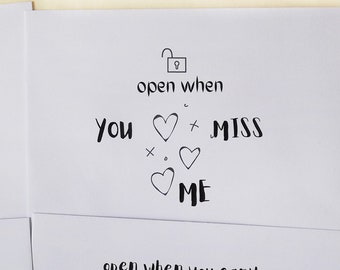 open when
YOU MISS
ME
open when you